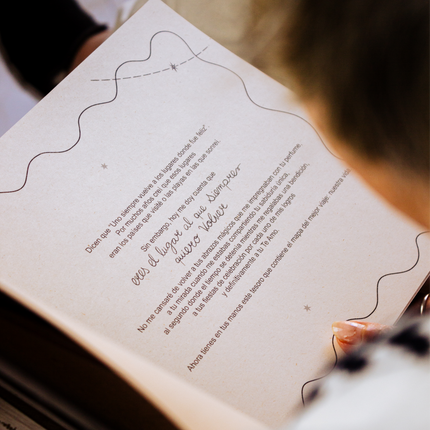 Dicen que "Uno siempre vuelve a los lugares donde fue feliz"
Por muchos años creí que esos lugares
eran los países que visité o las playas en las que sonreí.
Sin embargo hoy me doy cuenta que
eres el lugar al que siempre
quiero volver
No me cansaré de volver a tus abrazos mágicos que me impregnaban con tu perfume,
a tu mirada cuando me estabas compartiendo tu sabiduría única,
al segundo donde el tiempo se detenía mientras me regalabas una bendición,
a tus fiestas de celebración por cada uno de mis logros
y definitivamente a tu Te Amo
Ahora tienes en tus manos este tesoro que contiene el mapa del mejor viaje, nuestra